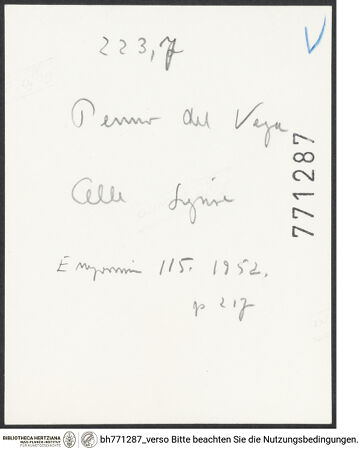 223,7
Perino del Vaga
Celle Ligure
Emporium 115. 1952.
p 217
771287
BIBLIOTHECA HERTZIANA
MAX-PLANCK-INSTITUT
FÜR KUNSTGESCHICHTE
bh771287_verso Bitte beachten Sie die Nutzungsbedingungen.